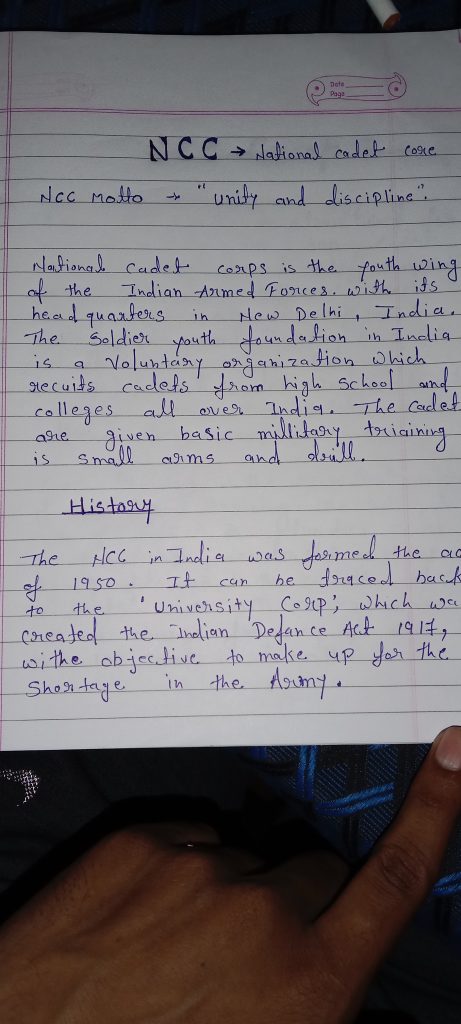 Date
Page
NCC → National cadet core
NCC Motto → "unity and discipline".
National cadet corps is the youth wing
of the Indian Armed Forces. with its
head quarters in New Delhi, India.
The Soldier youth foundation in India
is a Voluntary organization which
recuits cadets from high School and
colleges all over India. The Cadet
are given basic millitary triaining
is small arms and drill.
History
The NCC in India was formed the ac
of 1950. It can be traced back
to the 'University Corp', which wa
Created the Indian Defance Act 1917,
withe objective to make up for the
Shortage in the Army.